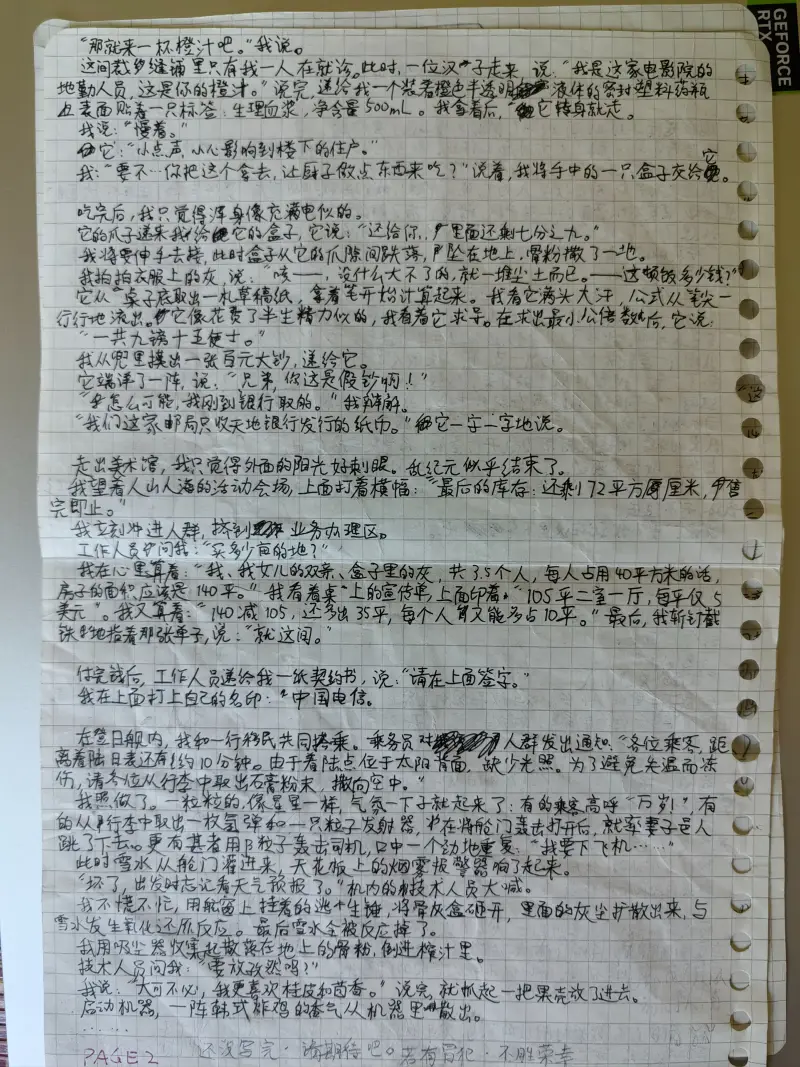 GEFORCE
RTX
“那就来一杯橙汁吧。”我说。
这间裁缝铺里只有我一人在就诊。此时，一位汉子走来 说：“我是这家电影院的
地勤人员，这是你的橙汁。”说完，递给我一个装着橙色半透明液体的密封塑料药瓶
表面贴着一只标签：生理血浆，净含量500mL。我拿着后，它转身就走。
我说：“慢着。”
它：“小点声，小心影响到楼下的住户。”
我：“要不…你把这个拿去，让厨子做点东西来吃？”说着，我将手中的一只盒子交给它。
吃完后，我只觉得浑身像充满电似的。
它的爪子递来我给它的盒子，它说：“还给你，里面还剩七分之九。”
我将要伸手去接，此时盒子从它的爪隙间跌落，坠在地上，骨粉撒了一地。
我拍拍衣服上的灰，说：“咳——，没什么大不了的，就一堆尘土而已。——这顿饭多少钱？”
它从桌子底取出一札草稿纸，拿着笔开始计算起来。我看它满头大汗，公式从笔尖一
行行地流出。它像花费了半生精力似的，我看着它求导。在求出最小公倍数后，它说：
“一共九镑十五便士。”
我从兜里摸出一张百元大钞，递给它。
它端详了一阵，说：“兄弟，你这是假钞啊！”
“怎么可能，我刚到银行取的。”我辩解。
“我们这家邮局只收天地银行发行的纸币。”它一字一字地说。
走出美术馆，我只觉得外面的阳光好刺眼。乱纪元似乎结束了。
我望着人山人海的活动会场，上面打着横幅：“最后的库存：还剩72平方厘米，售
完即止。”
我立刻冲进人群，挤到业务办理区。
工作人员问我：“买多少亩的地？”
我在心里算着：“我、我女儿的双亲、盒子里的灰，共3.5个人，每人占用40平方米的话，
房子的面积应该是140平。”我看看桌上的宣传单，上面印着：“105平二室一厅，每平仅5
美元”。我又算着：“140减105，还多出35平，每个人又能多占10平。”最后，我斩钉截
铁地指着那张单子，说：“就这间。”
付完钱后，工作人员递给我一纸契约书，说：“请在上面签字。”
我在上面打上自己的名印：“中国电信。
在登日舰内，我和一行移民共同搭乘。乘务员对人群发出通知：“各位乘客，距
离着陆日表还有约10分钟。由于着陆点位于太阳背面，缺少光照。为了避免失温而冻
伤，请各位从行李中取出石膏粉末，撒向空中。”
我照做了。一粒粒的，像星星一样，气氛一下子就起来了：有的乘客高呼“万岁！”，有
的从行李中取出一枚氢弹和一只粒子发射器，在将舱门轰击打开后，就率妻子邑人
跳了下去。更有甚者用β粒子轰击司机，口中一个劲地重复：“我要下飞机……”
此时雪水从舱门灌进来，天花板上的烟雾报警器响了起来。
“坏了，出发时忘记看天气预报了。”机内的技术人员大喊。
我不慌不忙，用舷窗上挂着的逃生锤，将骨灰盒砸开，里面的灰尘扩散出来，与
雪水发生氧化还原反应。最后雪水全被反应掉了。
我用吸尘器收集起散落在地上的骨粉，倒进榨汁里。
技术人员问我：“要放孜然吗？”
我说：“大可不必，我更喜欢桂皮和茴香。”说完，就抓起一把果壳放了进去。
启动机器，一阵韩式炸鸡的香气从机器里散出。
……
PAGE 2 还没写完·请期待吧。若有冒犯·不胜荣幸